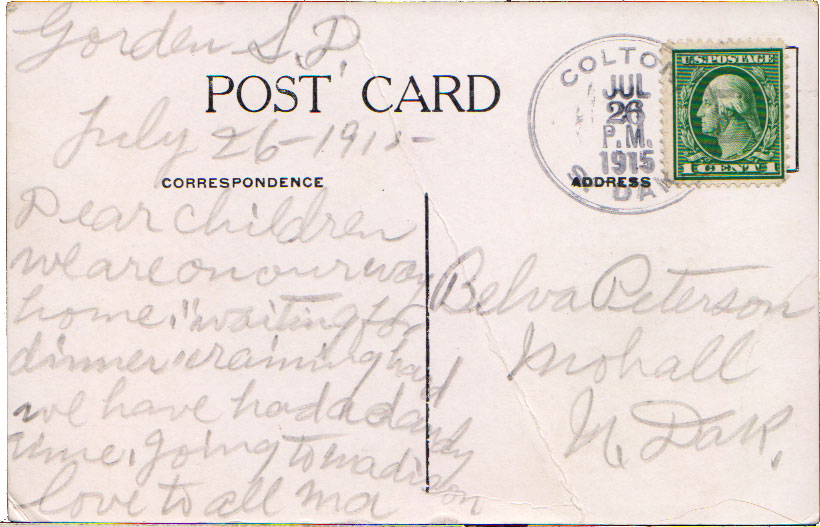 Gorden S.D.
POST CARD
July 26-1915-
CORRESPONDENCE
Dear children
we are on our way
home, waiting for
dinner raining hard
we have had a dandy
time, going to madison
love to all ma
COLTON
JUL
26
P.M.
1915
S. DAK
U.S. POSTAGE
1 CENT 1
ADDRESS
Belva Peterson
Mohall
N. Dak.